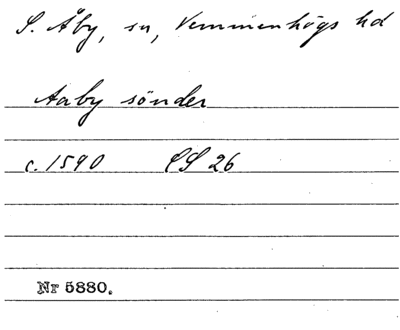 S. Åby, sn, Vemmenhögs hd
Aaby sönder
c. 1590 LS 26
Nr 5880.